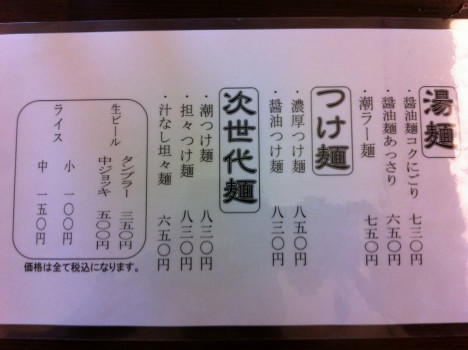 湯麺
・醤油麺コクにごり 七三〇円
・醤油麺あっさり 六五〇円
・潮ラー麺 七五〇円
つけ麺
・濃厚つけ麺 八五〇円
・醤油つけ麺 八三〇円
次世代麺
・潮つけ麺 八三〇円
・担々つけ麺 八三〇円
・汁なし坦々麺 六五〇円
生ビール
タンブラー 三五〇円
中ジョッキ 五〇〇円
ライス
小 一〇〇円
中 一五〇円
価格は全て税込になります。